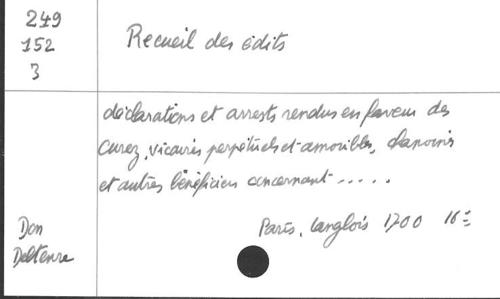 249
152
3
Recueil des édits
déclarations et arrests rendus en faveur des
curez, vicaires perpétuels et amovibles, chanoines
et autres bénéficiers concernant .....
Paris, Langlois 1700 16=
Don
Deltenre